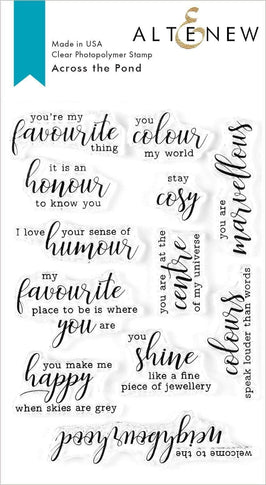 ALTENEW
Made in USA
Clear Photopolymer Stamp
Across the Pond
you're my
favourite
thing
you
colour
my world
it is an
honour
to know you
stay
cosy
you are
marvellous
I love your sense of
humour
you are at the
centre
of my universe
my
favourite
place to be is where
you are
colours
speak louder than words
you
shine
like a fine
piece of jewellery
you make me
happy
when skies are grey
welcome to the
neighbourhood